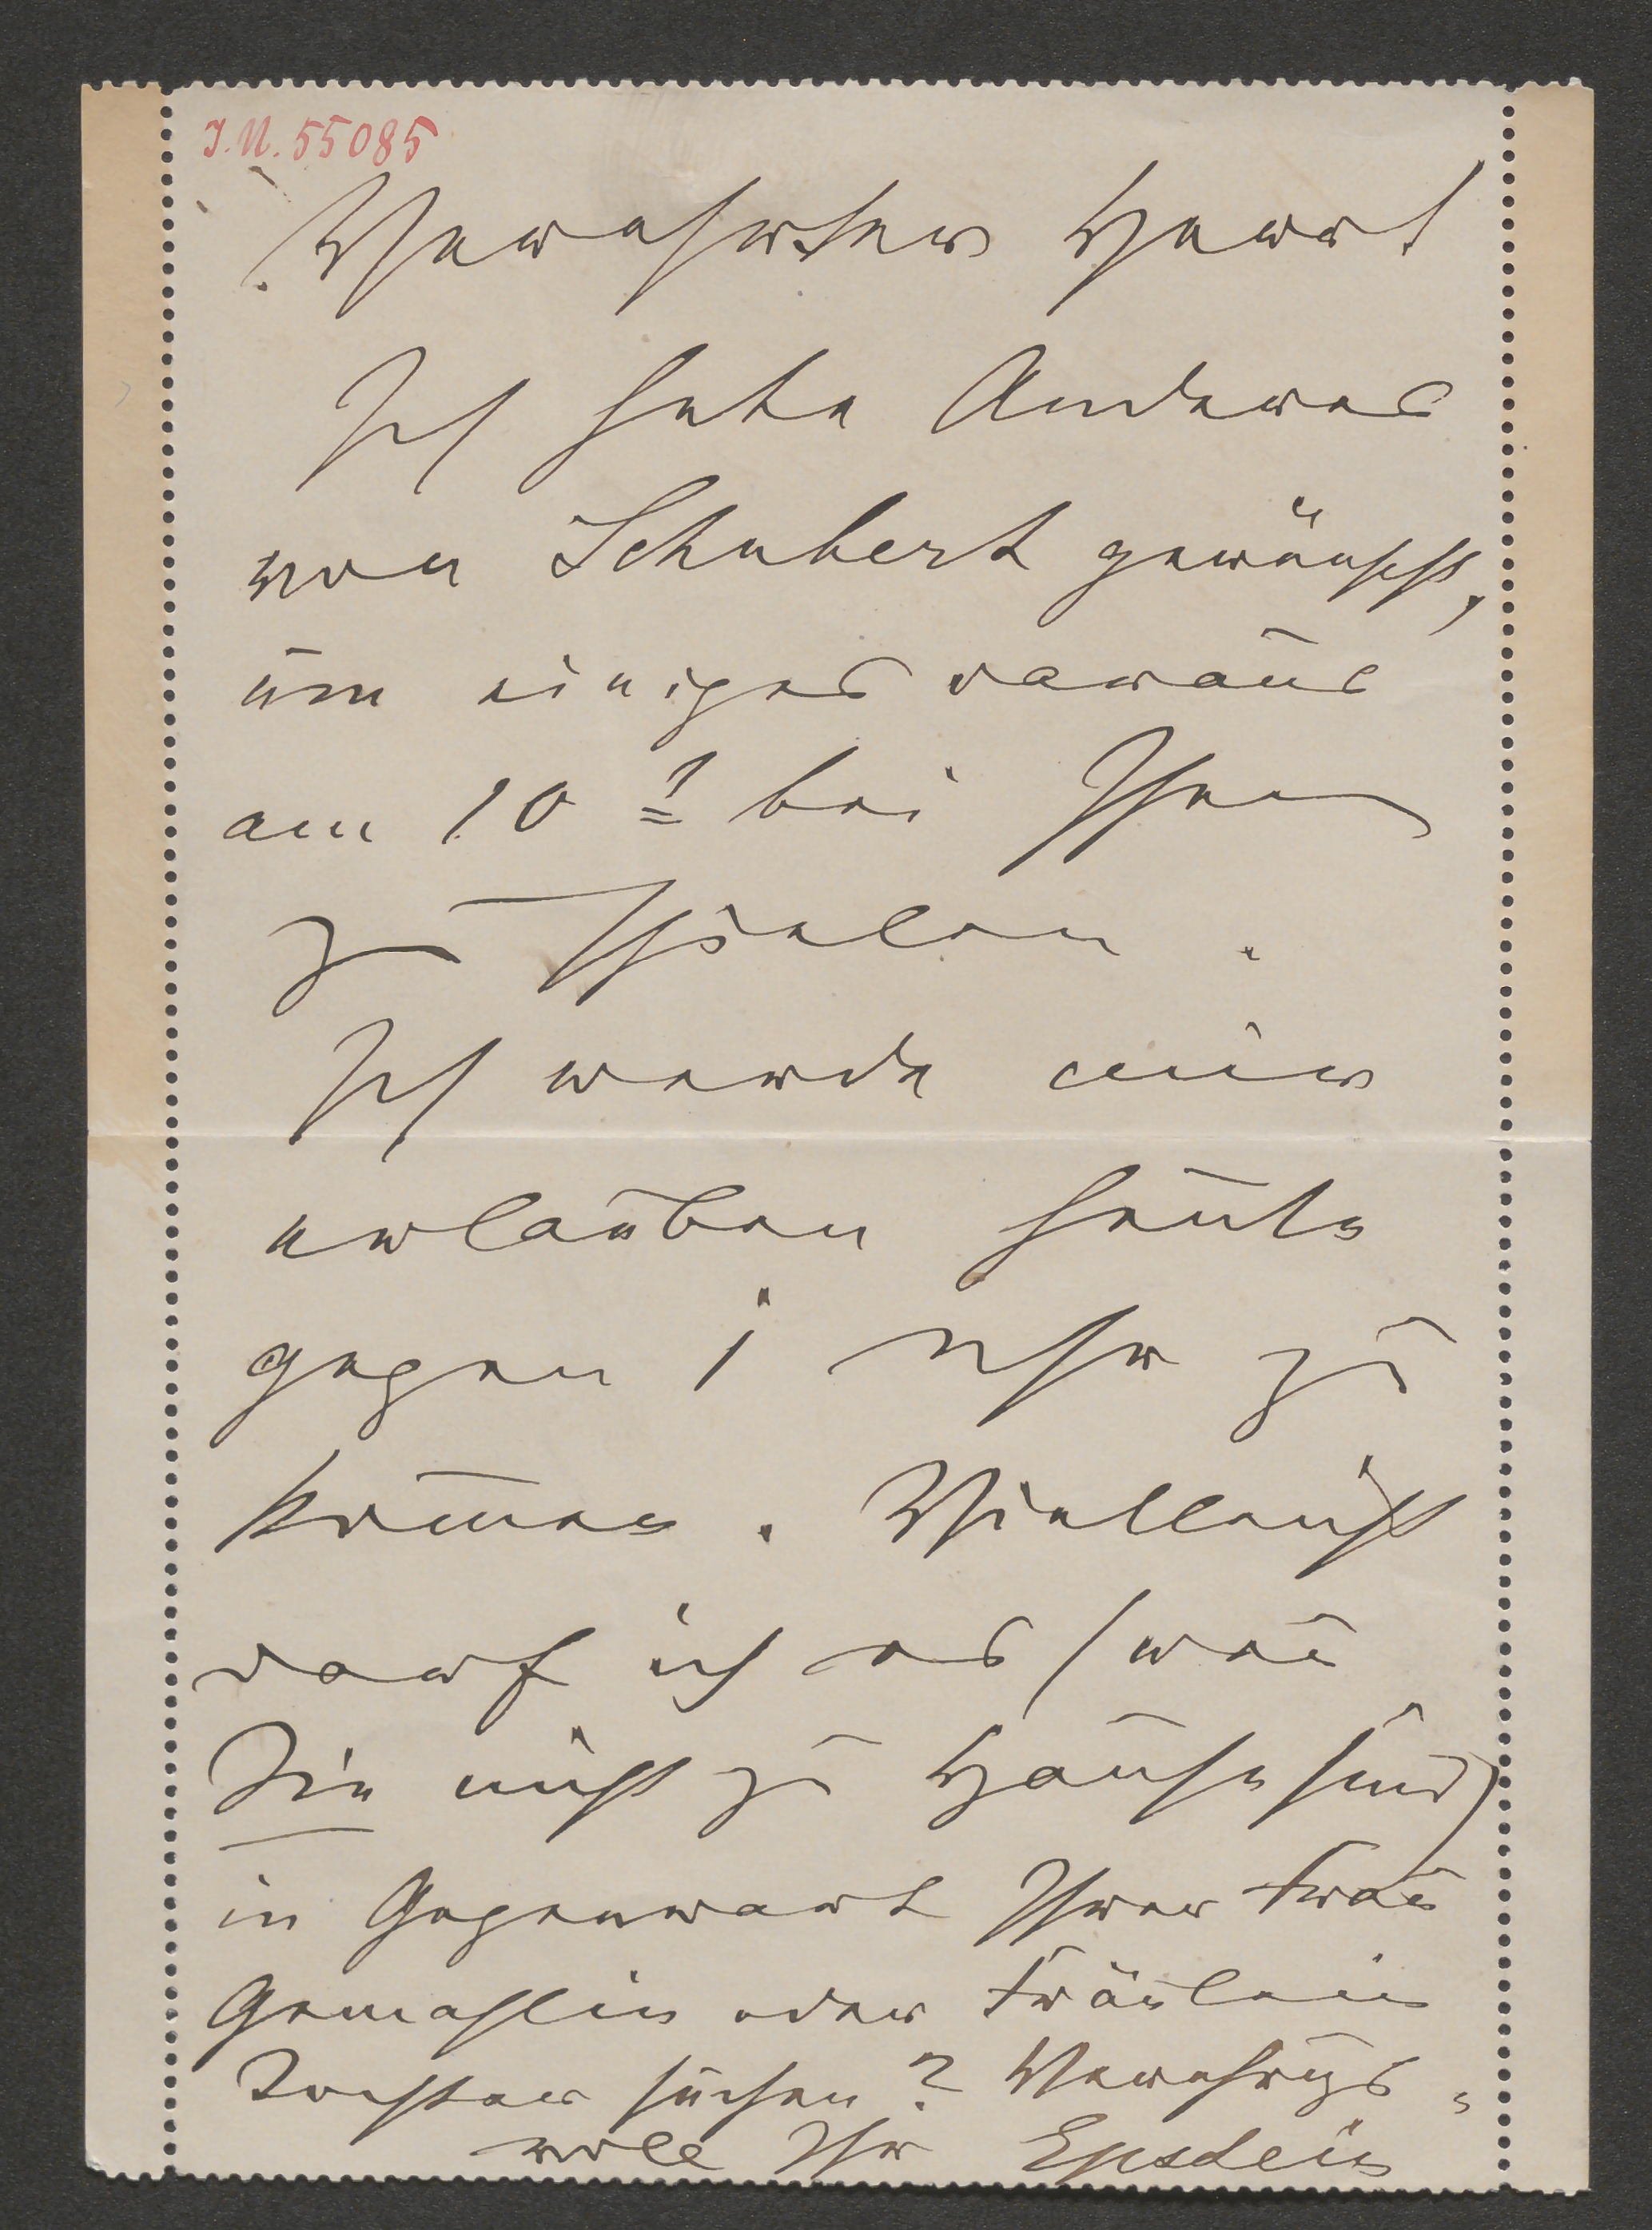 J.N. 55085
Verehrter Herr!
Ich habe Anderes
von Schubert gewünscht,
um einiges daraus
am 10t bei Ihnen
zu spielen.
Ich werde mir
erlauben heute
gegen 1 Uhr zu
kom̅en. Vielleicht
darf ich es (wenn
Sie nicht zu Hause sind)
in Gegenwart Ihrer Frau
Gemahlin oder Fräulein
Tochter suchen? Verehrungs-
voll Ihr Epstein